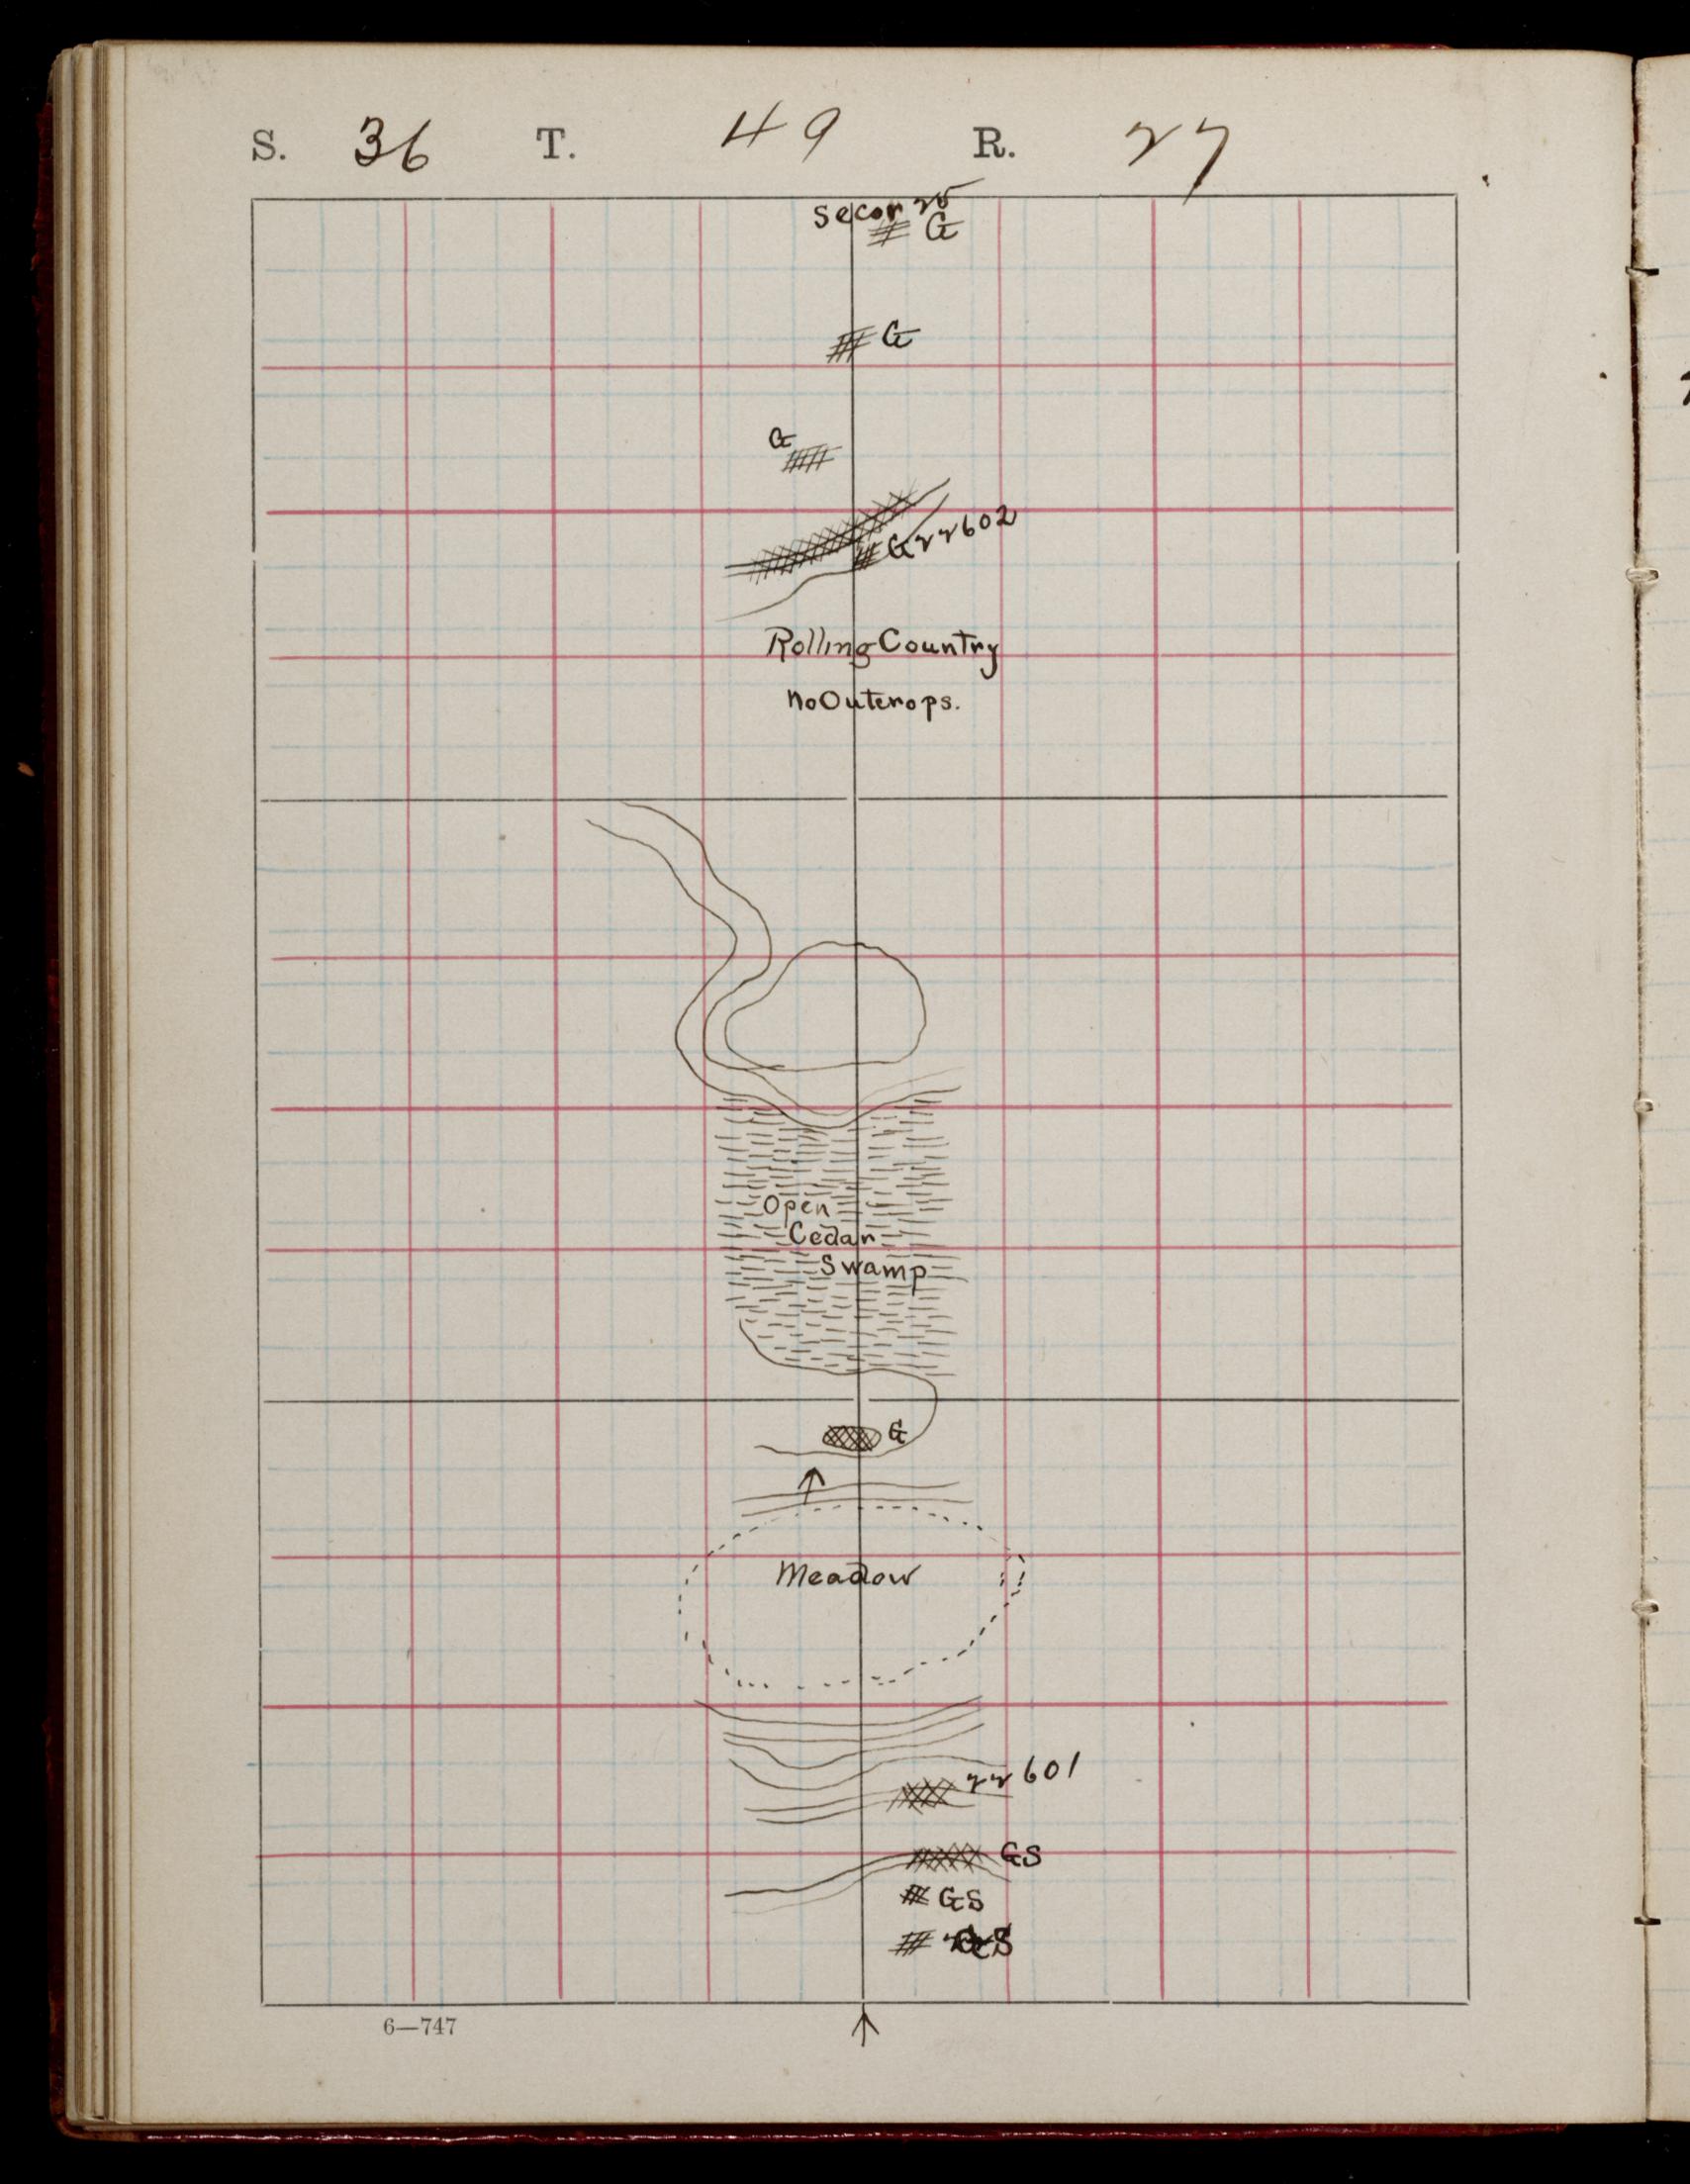 S. 36 T. 49 R. 27
Sec cor 25
G
G
G
G 22602
Rolling Country
No Outcrops.
Open
Cedar
Swamp
G
Meadow
22601
GS
GS
GS
6—747